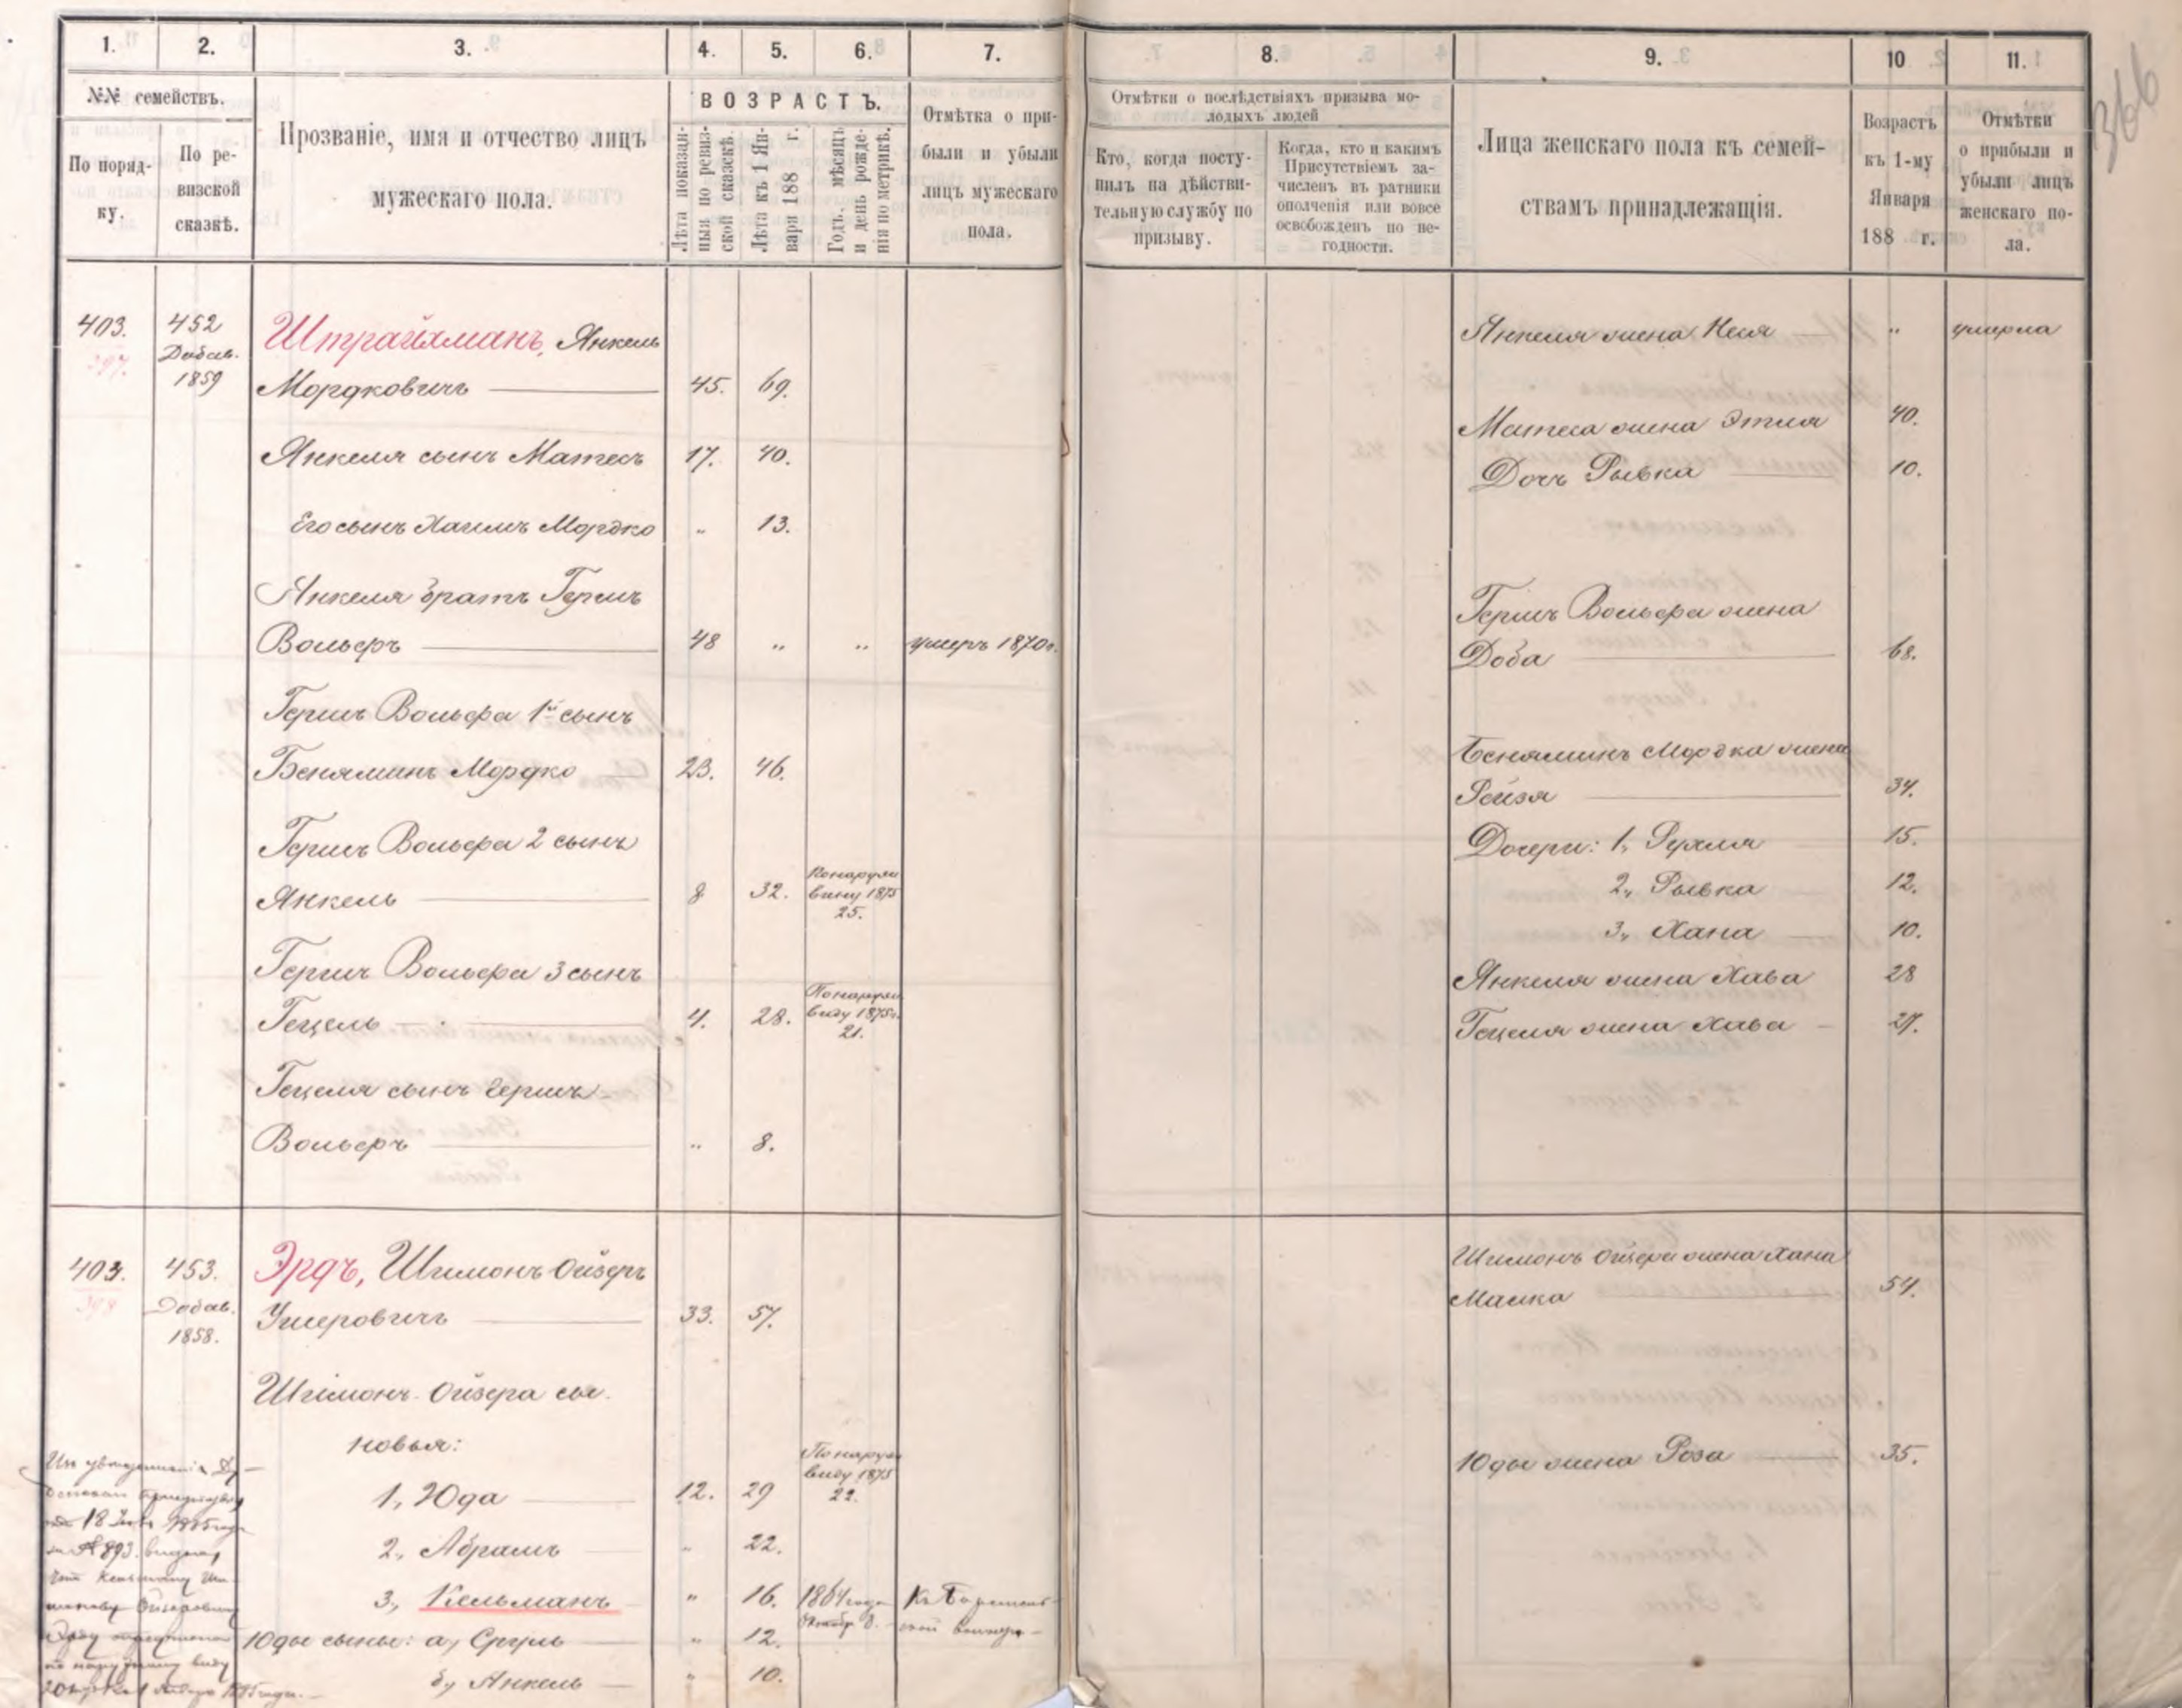 1. 2. 3. 4. 5. 6. 7. 8. 9. 10 11.
№№ семействъ.
По поряд-
ку.
По ре-
визской
сказкѣ.
Прозваніе, имя и отчество лицъ
мужескаго пола.
ВОЗРАСТЪ.
Лѣта показан-
ныя по ревиз-
ской сказкѣ.
Лѣта къ 1 Ян-
варя 188 г.
Годъ, мѣсяцъ
и день рожде-
нія по метрикѣ.
Отмѣтка о при-
были и убыли
лицъ мужескаго
пола.
Отмѣтки о послѣдствіяхъ призыва мо-
лодыхъ людей
Кто, когда посту-
пилъ на дѣйстви-
тельную службу по
призыву.
Когда, кто и какимъ
Присутствіемъ за-
численъ въ ратники
ополченія или вовсе
освобожденъ по не-
годности.
Лица женскаго пола къ семей-
ствамъ принадлежащія.
Возрастъ
къ 1-му
Января
188 г.
Отмѣтки
о прибыли и
убыли лицъ
женскаго по-
ла.
366
403. 452 Штрайхманъ, Янкель
397. Добав.
1859
Мордковичъ 45. 69.
Янкеля сынъ Матесъ 17. 40.
Его сынъ Хаимъ Мордко „ 13.
Янкеля братъ Гершъ
Вольфъ 48 „ „ умеръ 1870г.
Гершъ Вольфа 1й сынъ
Беняминъ Мордко 23. 46.
Гершъ Вольфа 2 сынъ
Янкель 8 32. По наружн
виду 1875
25.
Гершъ Вольфа 3 сынъ
Гецель 4. 28. По наружн
виду 1875г.
21.
Гецеля сынъ Гершъ
Вольфъ „ 8.
Янкеля жена Неся „ умерла
Матеса жена Этля 40.
Дочь Рывка 10.
Гершъ Вольфа жена
Доба 68.
Беняминъ Мордка жена
Рейзя 34.
Дочери: 1, Рухля 15.
2, Рывка 12.
3, Хана 10.
Янкеля жена Хава 28
Гецеля жена Хава 27.
404. 453. Эрдъ, Шимонъ Ойзеръ
398 Добав.
1858.
Ушеровичъ 33. 57.
Шимонъ Ойзера сы-
новья:
1, Юда 12. 29 По наружн
виду 1875
22.
2, Абрамъ „ 22.
3, Кельманъ „ 16. 1864 года
8.
Юды сыны: а, Сруль „ 12.
б, Янкель „ 10.
18 1885 года
№ 893.
виду
Шимонъ Ойзера жена Хана
Малка 54.
Юды жена Роза 35.